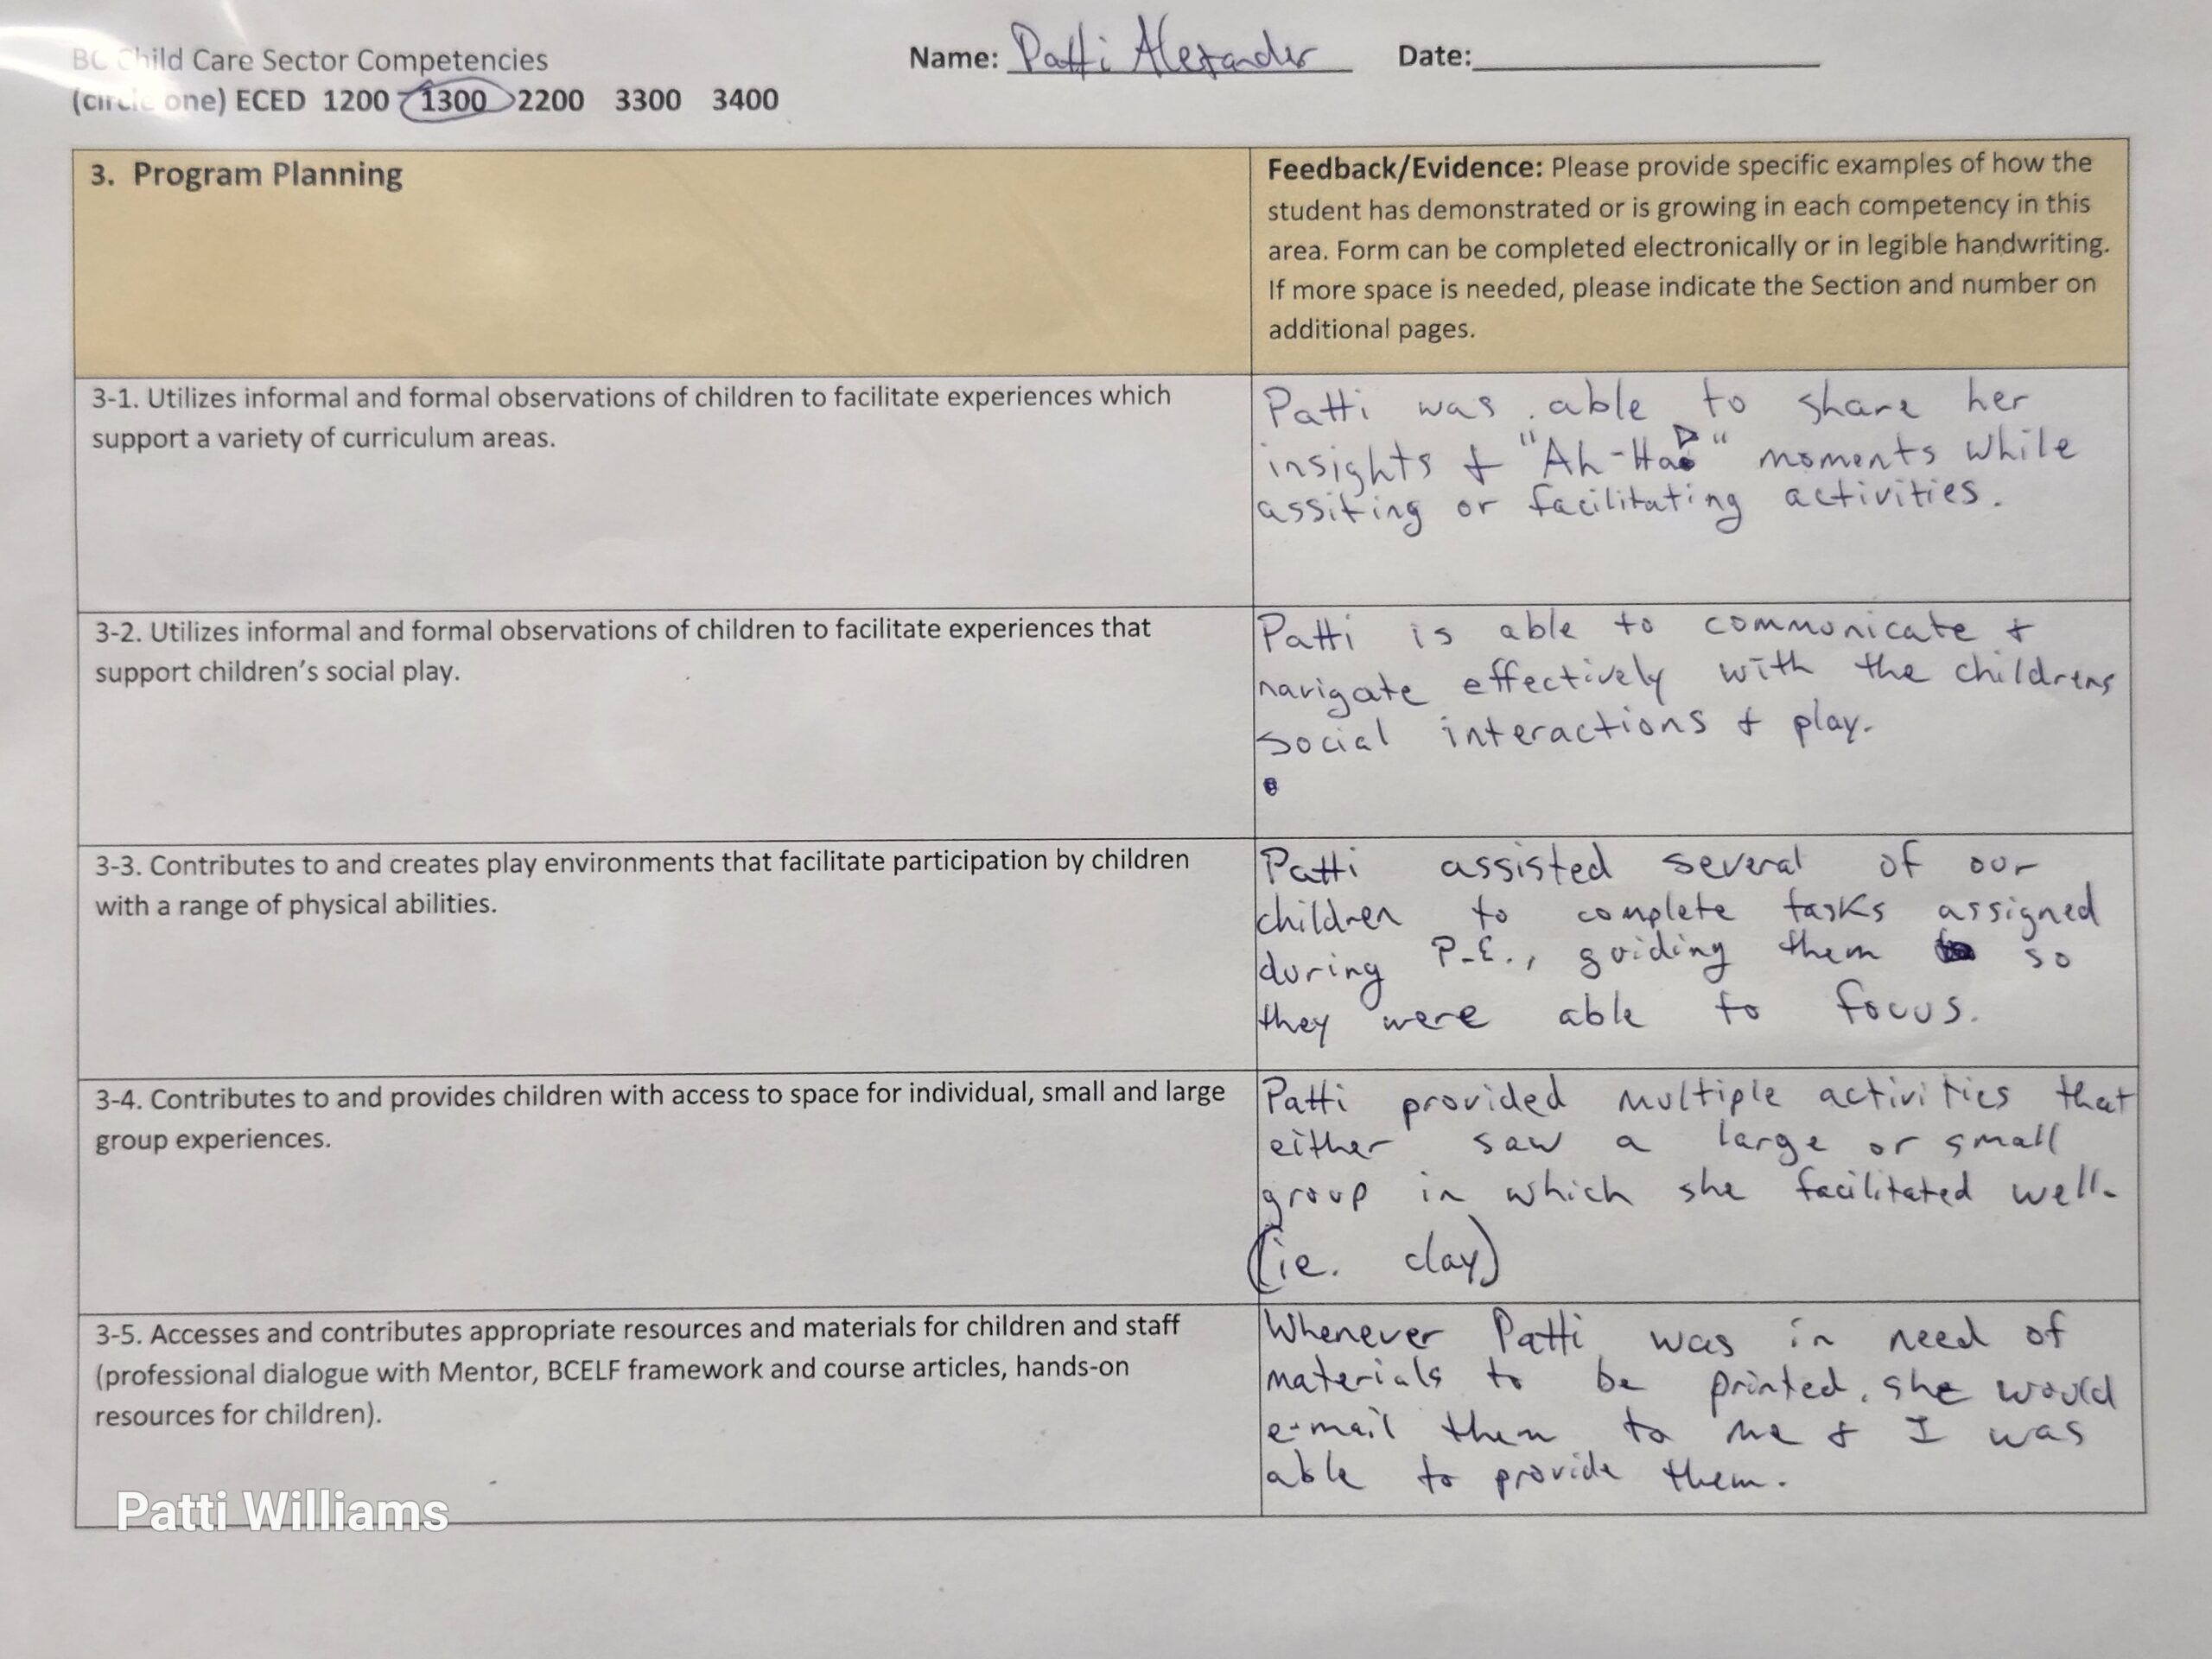 BC Child Care Sector Competencies
Name: Patti Alexander Date:
(circle one) ECED 1200 1300 2200 3300 3400
3. Program Planning
Feedback/Evidence: Please provide specific examples of how the
student has demonstrated or is growing in each competency in this
area. Form can be completed electronically or in legible handwriting.
If more space is needed, please indicate the Section and number on
additional pages.
3-1. Utilizes informal and formal observations of children to facilitate experiences which
support a variety of curriculum areas.
Patti was able to share her
insights + "Ah-Ha!" moments while
assiting or facilitating activities.
3-2. Utilizes informal and formal observations of children to facilitate experiences that
support children's social play.
Patti is able to communicate +
navigate effectively with the childrens
social interactions + play.
3-3. Contributes to and creates play environments that facilitate participation by children
with a range of physical abilities.
Patti assisted several of our
children to complete tasks assigned
during P.E., guiding them so
they were able to focus.
3-4. Contributes to and provides children with access to space for individual, small and large
group experiences.
Patti provided multiple activities that
either saw a large or small
group in which she facilitated well.
(ie. clay)
3-5. Accesses and contributes appropriate resources and materials for children and staff
(professional dialogue with Mentor, BCELF framework and course articles, hands-on
resources for children).
Whenever Patti was in need of
materials to be printed, she would
e-mail them to me + I was
able to provide them.
Patti Williams